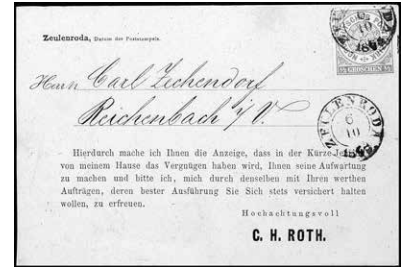 Zeulenroda, Datum des Poststempels.
Herrn Carl Zechendorf
Reichenbach i/V.
ZEULENRODA
6
10
Hierdurch mache ich Ihnen die Anzeige, dass in der Kürze Jemand
von meinem Hause das Vergnügen haben wird, Ihnen seine Aufwartung
zu machen und bitte ich, mich durch denselben mit Ihren werthen
Aufträgen, deren bester Ausführung Sie sich stets versichert halten
wollen, zu erfreuen.
Hochachtungsvoll
C. H. ROTH.